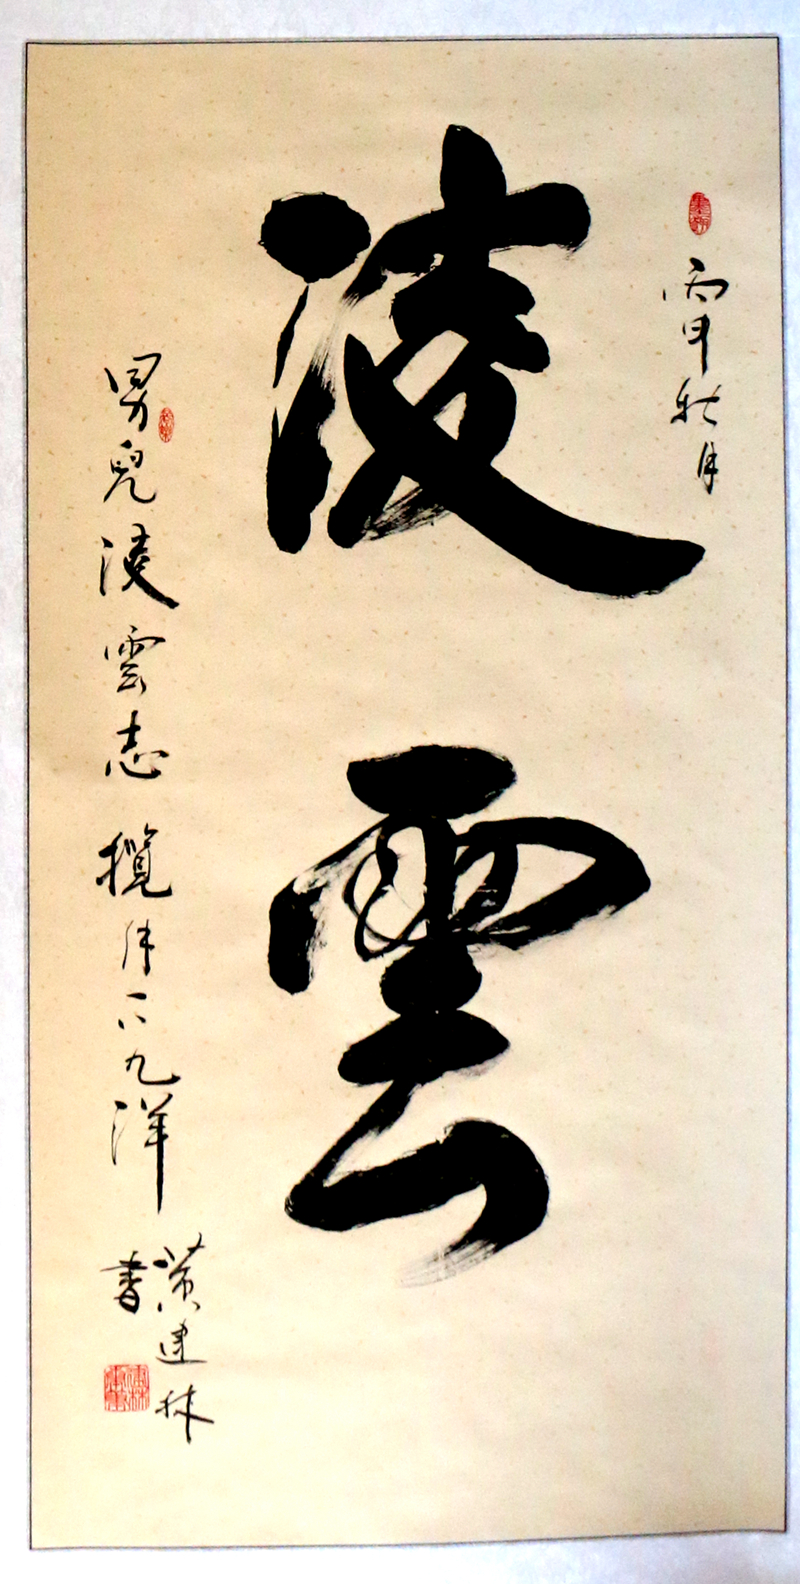 丙申秋月
淩雲
男兒淩雲志攬月下九洋
黄建林
書